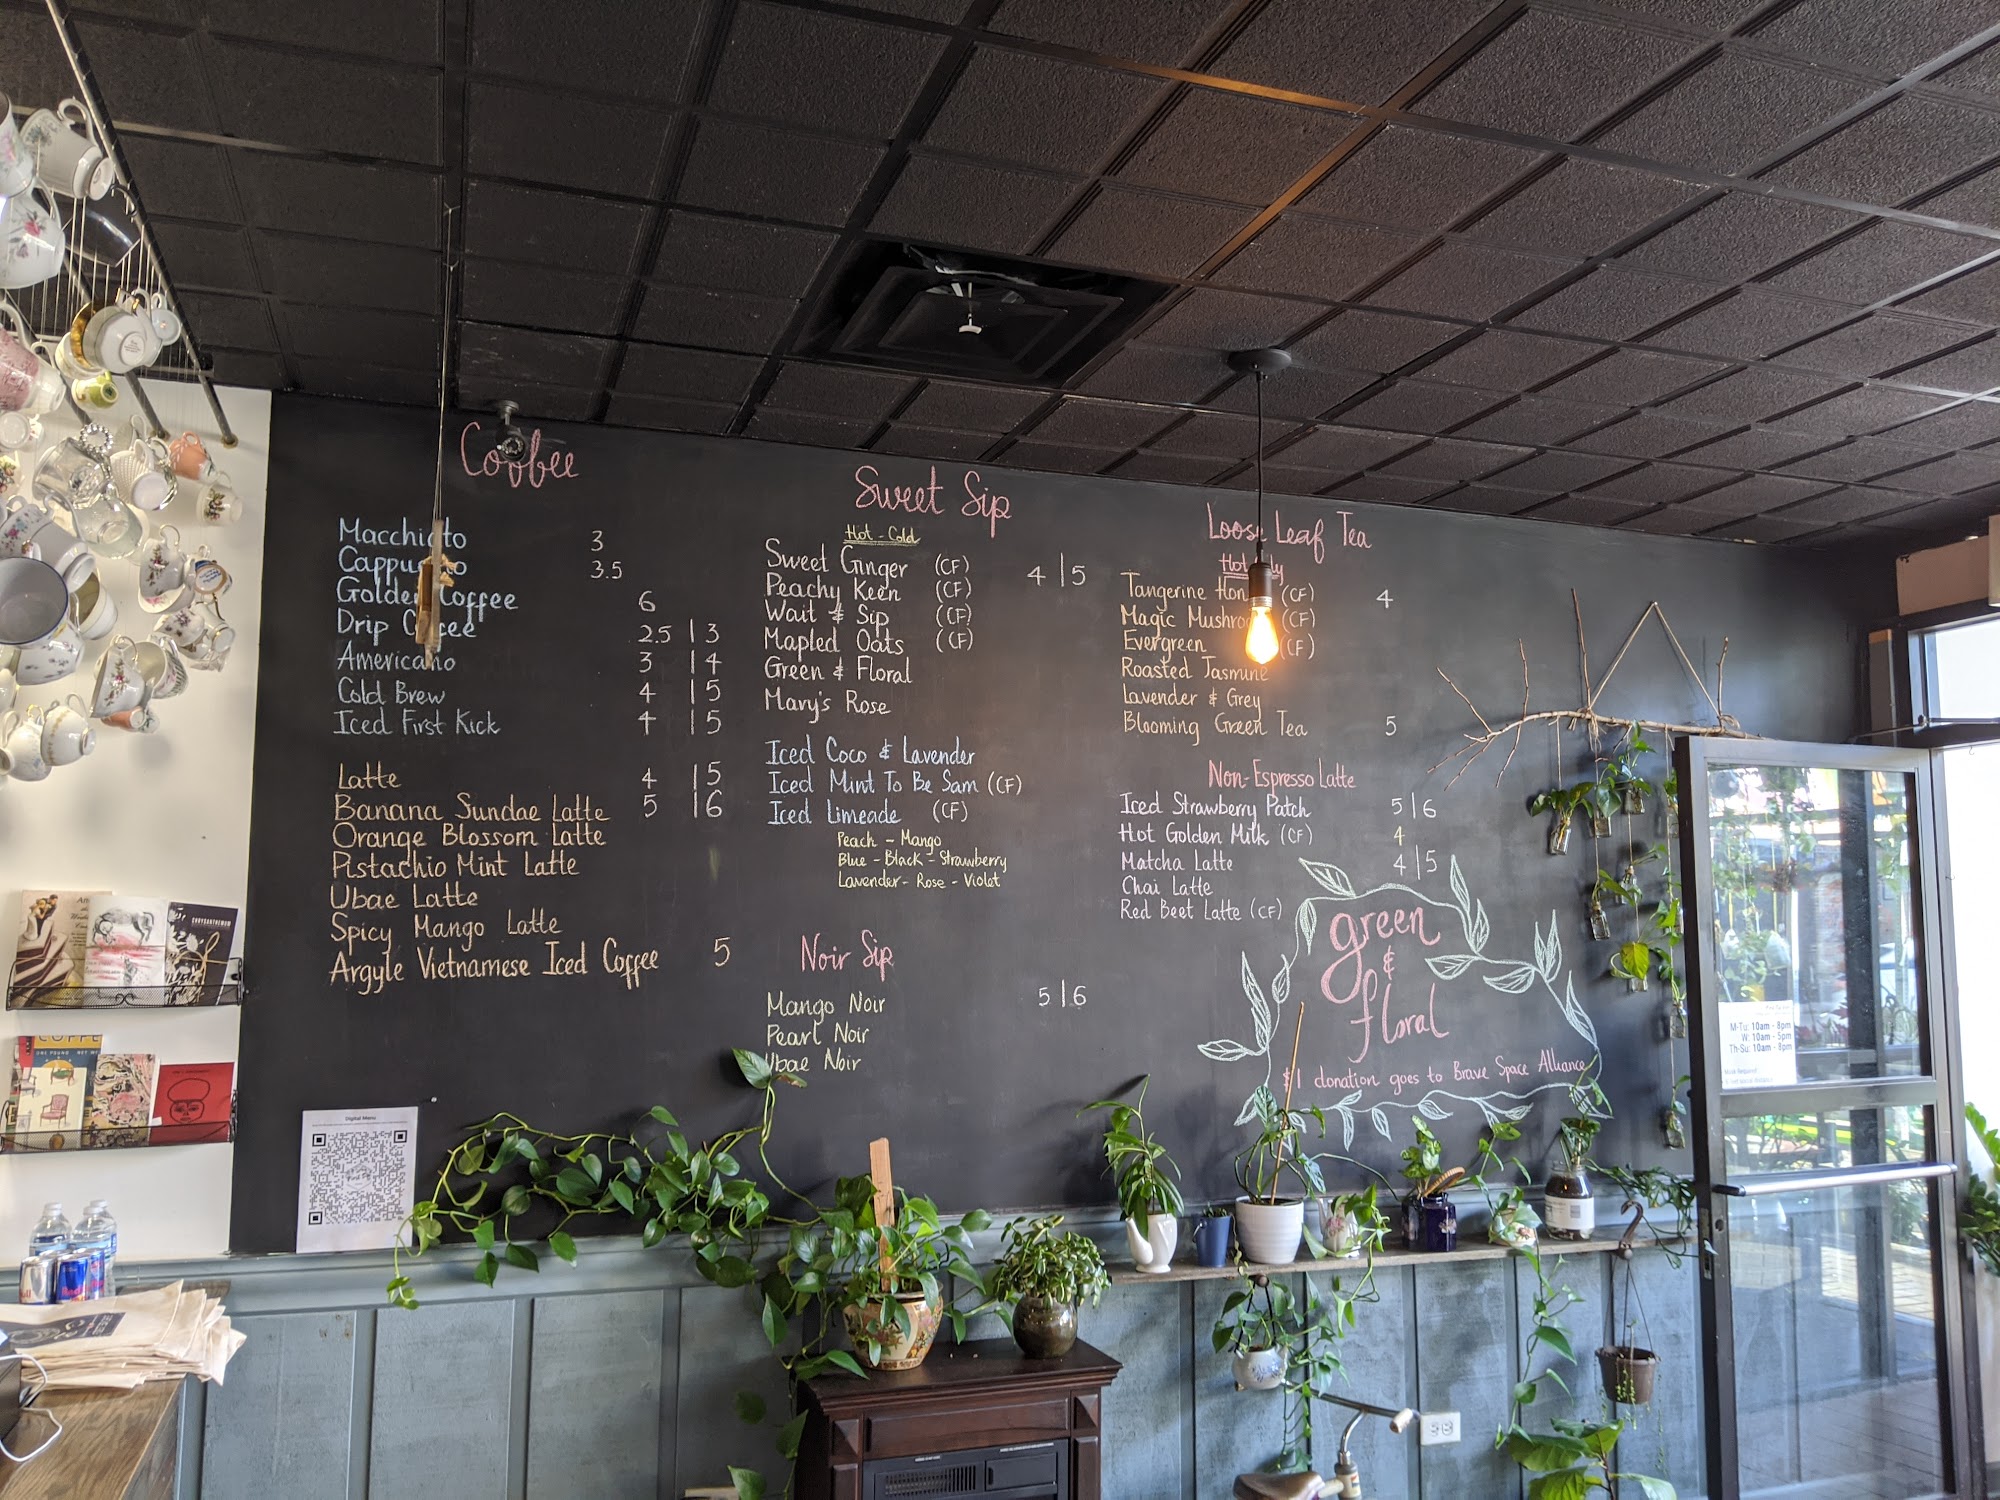 Coffee
Macchiato 3
Cappuccino 3.5
Golden Coffee 6
Drip Coffee 2.5 | 3
Americano 3 | 4
Cold Brew 4 | 5
Iced First Kick 4 | 5
Latte 4 | 5
Banana Sundae Latte 5 | 6
Orange Blossom Latte
Pistachio Mint Latte
Ubae Latte
Spicy Mango Latte
Argyle Vietnamese Iced Coffee 5
Sweet Sip
Hot - Cold
Sweet Ginger (CF) 4 | 5
Peachy Keen (CF)
Wait & Sip (CF)
Mapled Oats (CF)
Green & Floral
Mary's Rose
Iced Coco & Lavender
Iced Mint To Be Sam (CF)
Iced Limeade (CF)
Peach - Mango
Blue - Black - Strawberry
Lavender - Rose - Violet
Noir Sip
Mango Noir 5 | 6
Pearl Noir
Ubae Noir
Loose Leaf Tea
Hot Only
Tangerine (CF) 4
Magic Mushroom (CF)
Evergreen (CF)
Roasted Jasmine
Lavender & Grey
Blooming Green Tea 5
Non-Espresso Latte
Iced Strawberry Patch 5 | 6
Hot Golden Milk (CF) 4
Matcha Latte 4 | 5
Chai Latte
Red Beet Latte (CF)
green
&
floral
$1 donation goes to Brave Space Alliance
Digital Menu
M-Tu: 10am - 8pm
W: 10am - 5pm
Th-Su: 10am - 8pm
CHRYSANTHEMUM